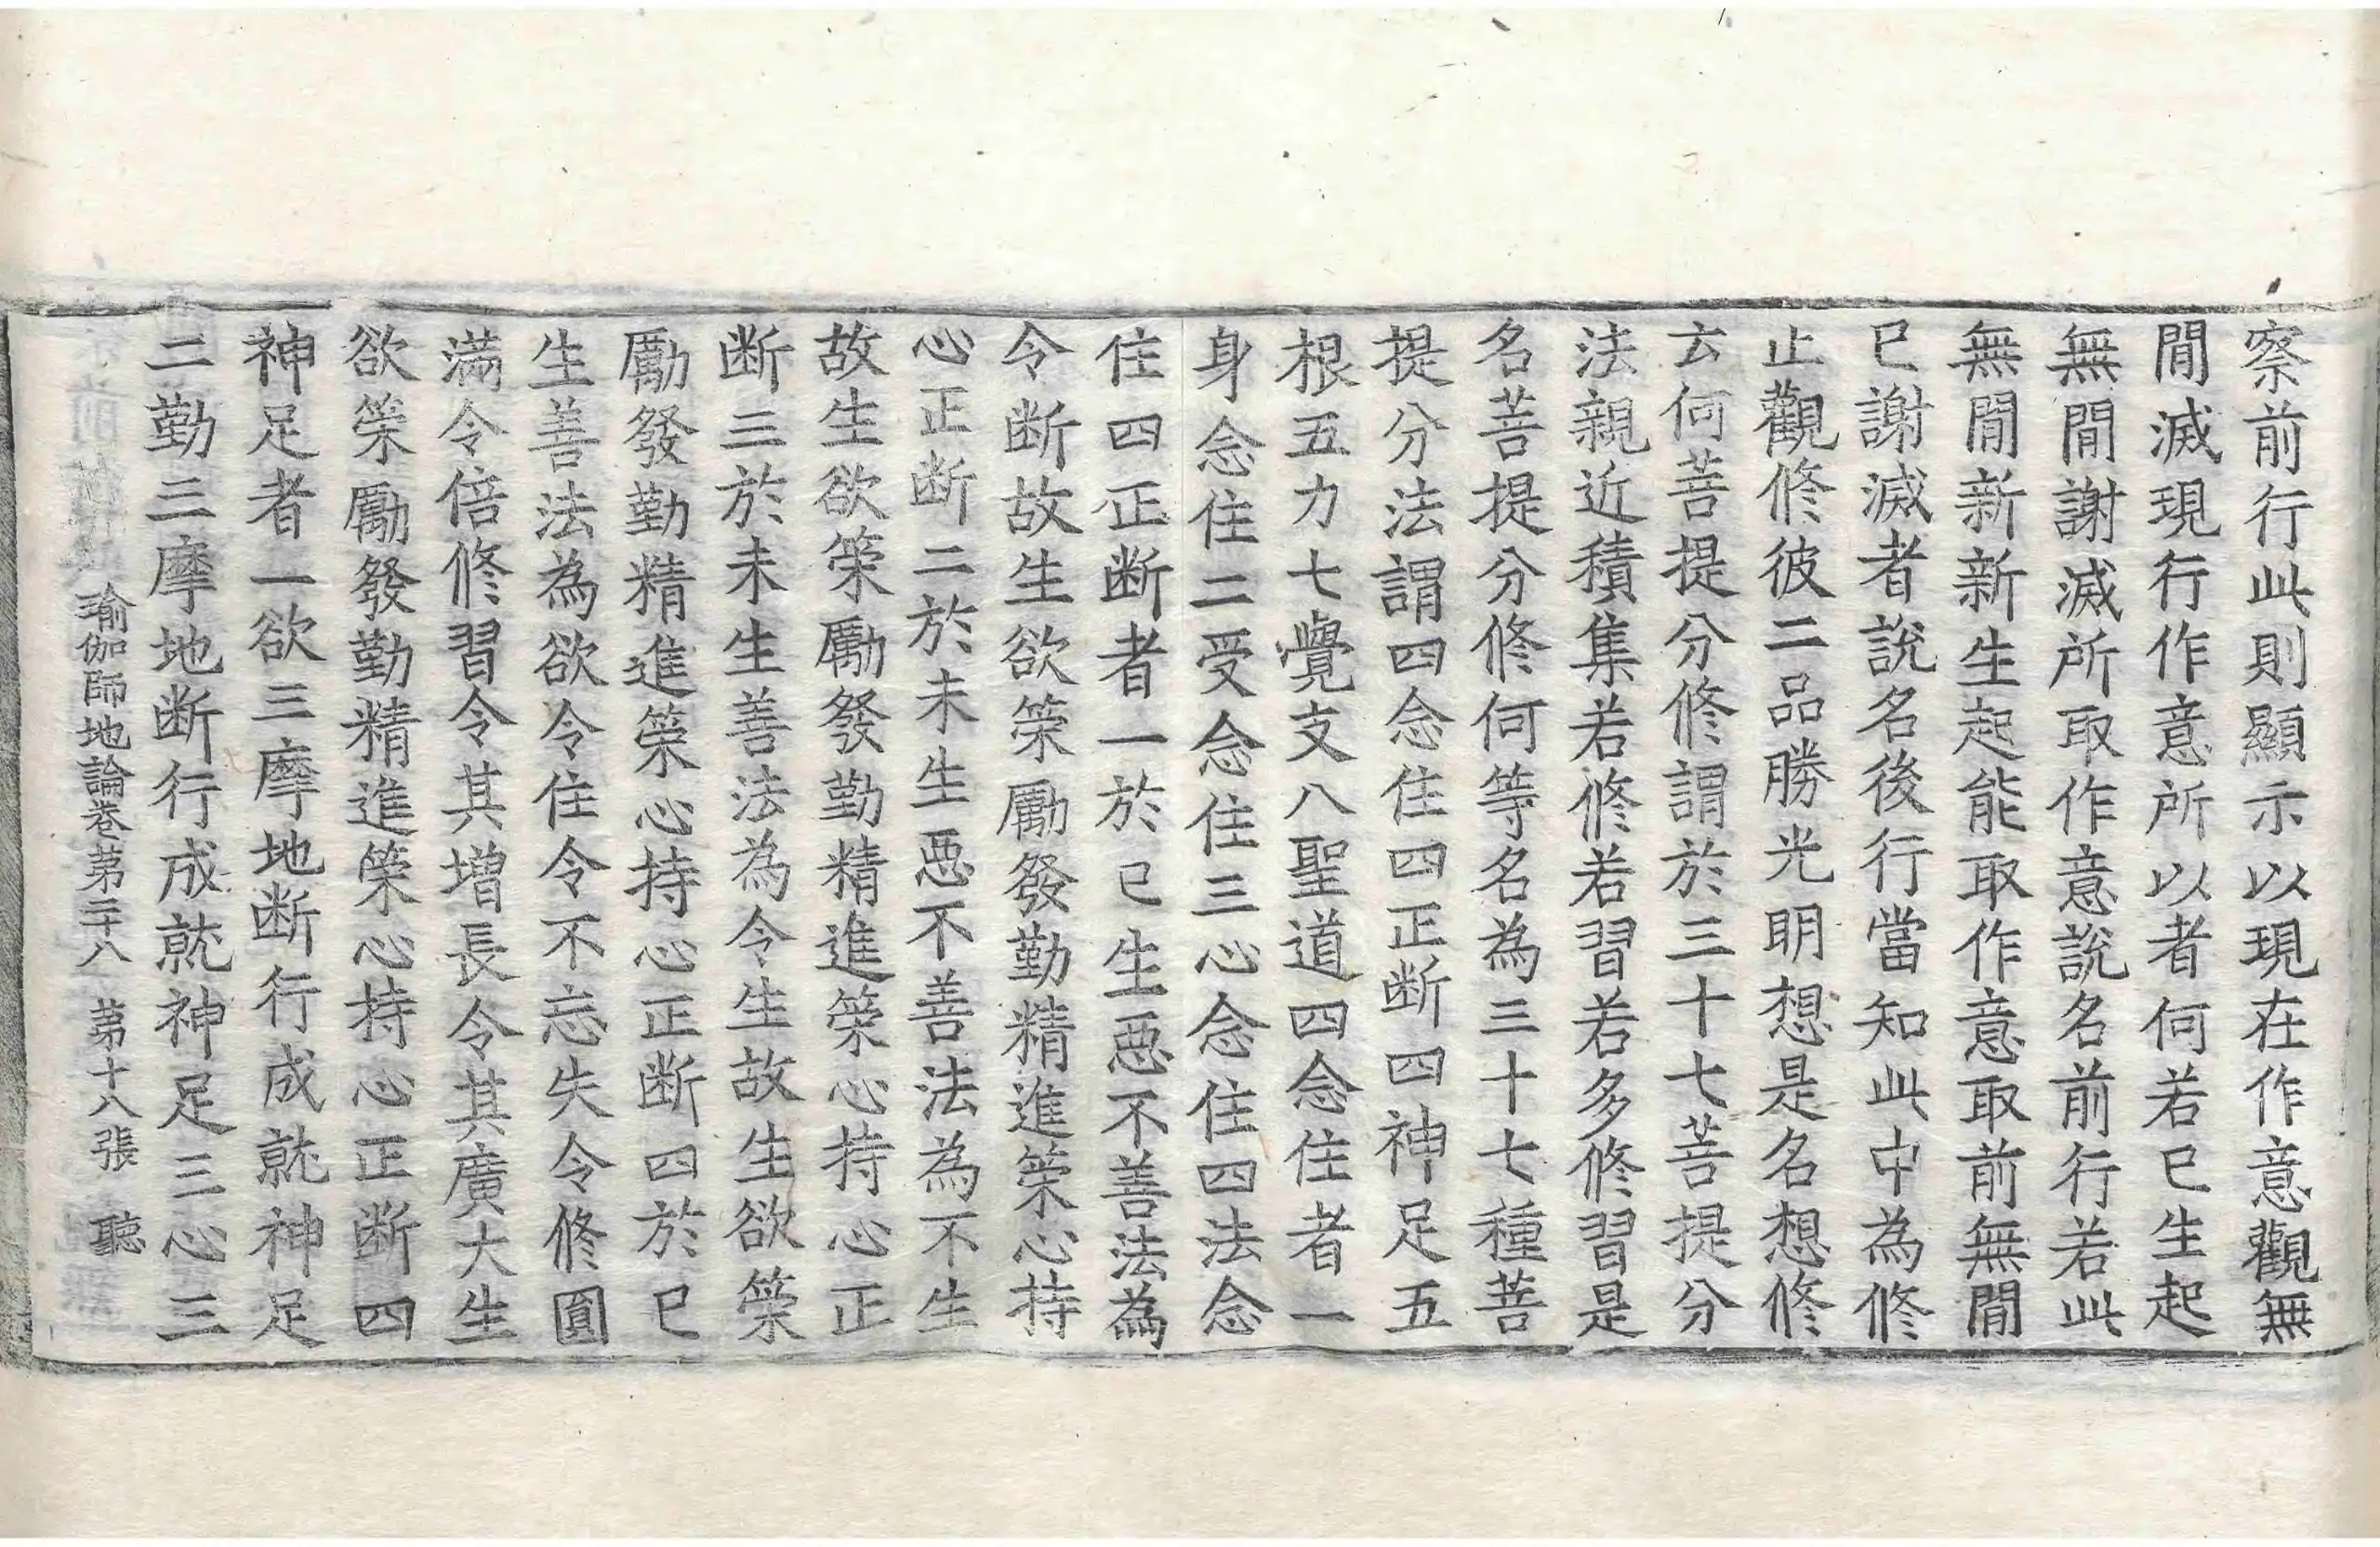 察前行此則顯示以現在作意觀無
閒滅現行作意所以者何若已生起
無閒謝滅所取作意說名前行若此
無閒新新生起能取作意取前無閒
已謝滅者說名後行當知此中為修
止觀修彼二品勝光明想是名想修
云何菩提分修謂於三十七菩提分
法親近積集若修若習若多修習是
名菩提分修何等名為三十七種菩
提分法謂四念住四正断四神足五
根五力七覺支八聖道四念住者一
身念住二受念住三心念住四法念
住四正断者一於已生悪不善法為
令断故生欲策勵發勤精進策心持
心正断二於未生悪不善法為不生
故生欲策勵發勤精進策心持心正
断三於未生善法為令生故生欲策
勵發勤精進策心持心正断四於已
生善法為欲令住令不忘失令修圓
滿令倍修習令其增長令其廣大生
欲策勵發勤精進策心持心正断四
神足者一欲三摩地断行成就神足
二勤三摩地断行成就神足三心三
瑜伽師地論卷第二十八 第十八張 聽